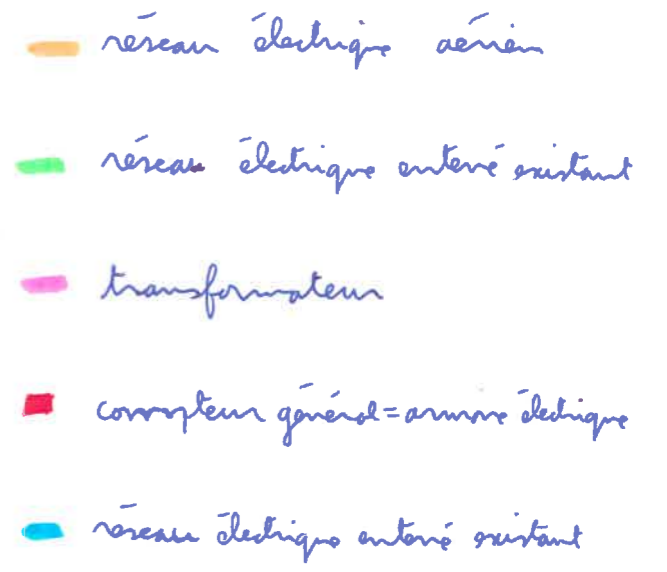 réseau électrique aérien
réseau électrique enterré existant
transformateur
compteur général = armoire électrique
réseau électrique enterré existant